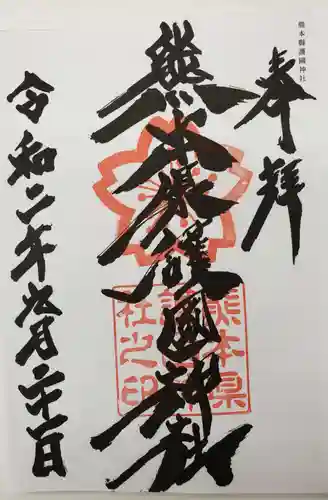 熊本縣護國神社
奉拝
熊本県護國神社
熊本県護國神社之印
令和二年九月二十一日